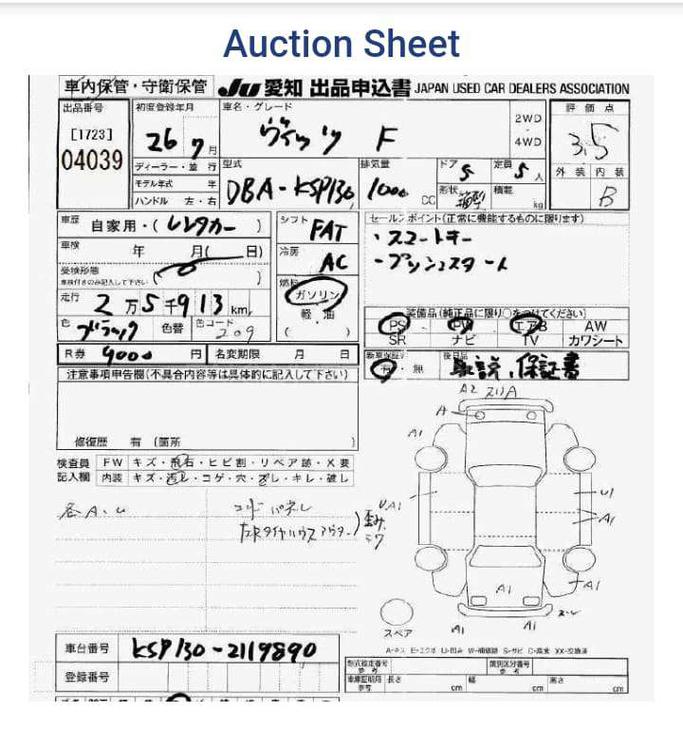 Auction Sheet
車内保管・守衛保管 JU 愛知 出品申込書 JAPAN USED CAR DEALERS ASSOCIATION
出品番号 初度登録年月 車名・グレード 2WD 評価点
[1723] 26 7月 ヴィッツ F 4WD 3.5
04039 ディーラー・並行 型式 排気量 ドア 5 定員 5人 外装 内装
モデル年式 年 DBA-KSP130 1000 CC 形状 積載 kg B
ハンドル 左・右
車歴 自家用・(レンタカー) シフト FAT セールスポイント(正常に機能するものに限ります)
車検 年 月( 日) 冷房 AC ・スマートキー
受検形態 ( ) ・プッシュスタート
車検付きのみ記入して下さい
走行 2万5千913km 燃料 ガソリン 装備品(純正品に限り○をつけてください)
色 ブラック 色替 色コード 209 軽・油 PS PW エアB AW
( ) SR ナビ TV カワシート
R券 9000円 名変期限 月 日 新車保証書 有・無 後日品 取説、保証書
注意事項申告欄(不具合内容等は具体的に記入して下さい)
修復歴 有 (箇所 )
検査員 FW キズ・飛石・ヒビ割・リペア跡・X要
記入欄 内装 キズ・汚レ・コゲ・穴・ズレ・キレ・破レ
各A.U コアパネル
左Rタイヤハウスアウター) 歪み.
A2 スリA
A
A1
U A1
U1
A1
A1
A1
A1
A1
スペア
A-キズ E-エクボ U-凹み W-補修跡 S-サビ C-腐食 XX-交換済
車台番号 KSP130-2119890
登録番号
型式指定番号 参考 類別区分番号 参考
車庫証明用 参考 長さ cm 幅 cm 高さ cm